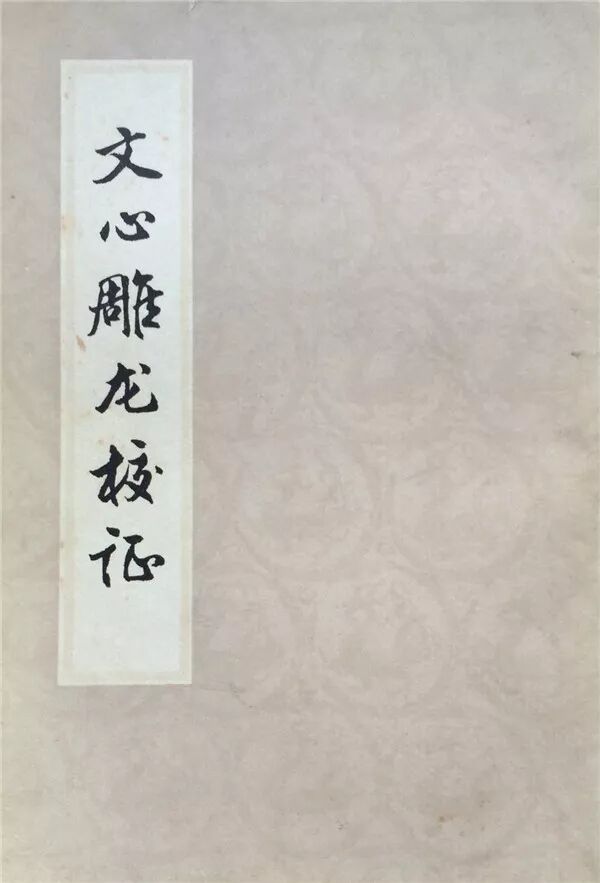 文心雕龙校证